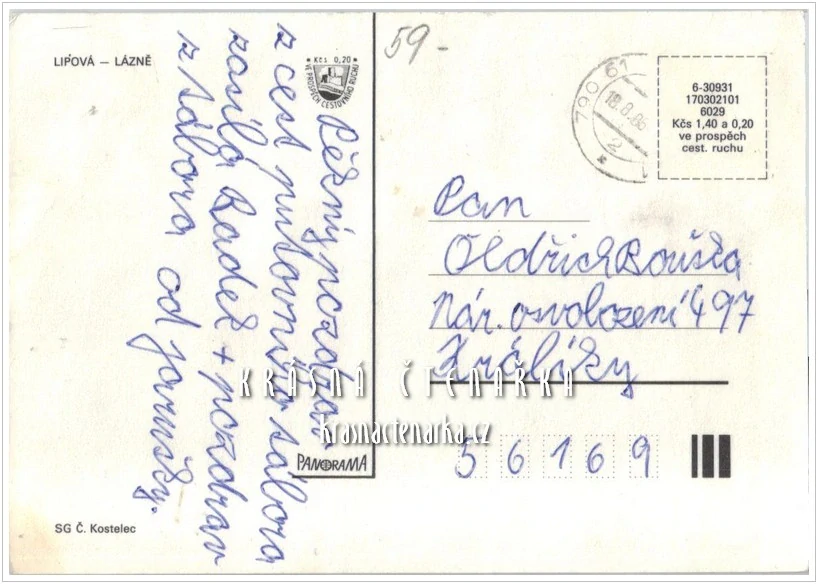 LIPOVÁ – LÁZNĚ
Kčs 0,20
VE PROSPĚCH CESTOVNÍHO RUCHU
Pěkný pozdrav
z cest putovního tábora
zasílá Radek + pozdrav
z tábora od Jarušky.
PANORAMA
SG Č. Kostelec
59-
790 61
18.8.86
2
6-30931
170302101
6029
Kčs 1,40 a 0,20
ve prospěch
cest. ruchu
Pan
Oldřich Rouska
Nár. osvobození 497
Králíky
56169
KRÁSNÁ ČTENÁŘKA
krasnactenarka.cz